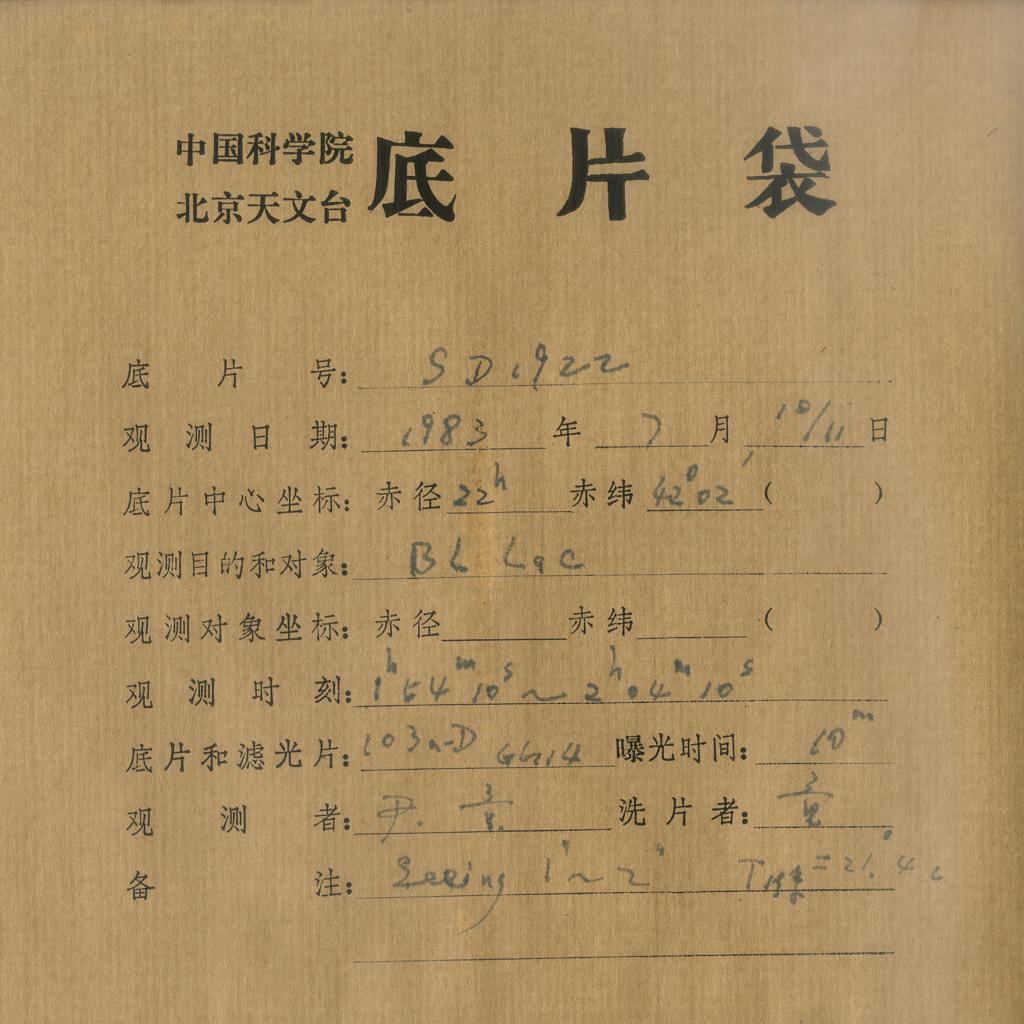 中国科学院
北京天文台
底片袋
底片号: SD1922
观测日期: 1983年7月10/11日
底片中心坐标: 赤径22h 赤纬42°02′ ( )
观测目的和对象: BL Lac
观测对象坐标: 赤径 赤纬 ( )
观测时刻: 1h54m10s~2h04m10s
底片和滤光片: 103a-D GG14 曝光时间: 10m
观测者: 尹.
洗片者:
备注: Seeing 1″~2″ T =21.°4 c